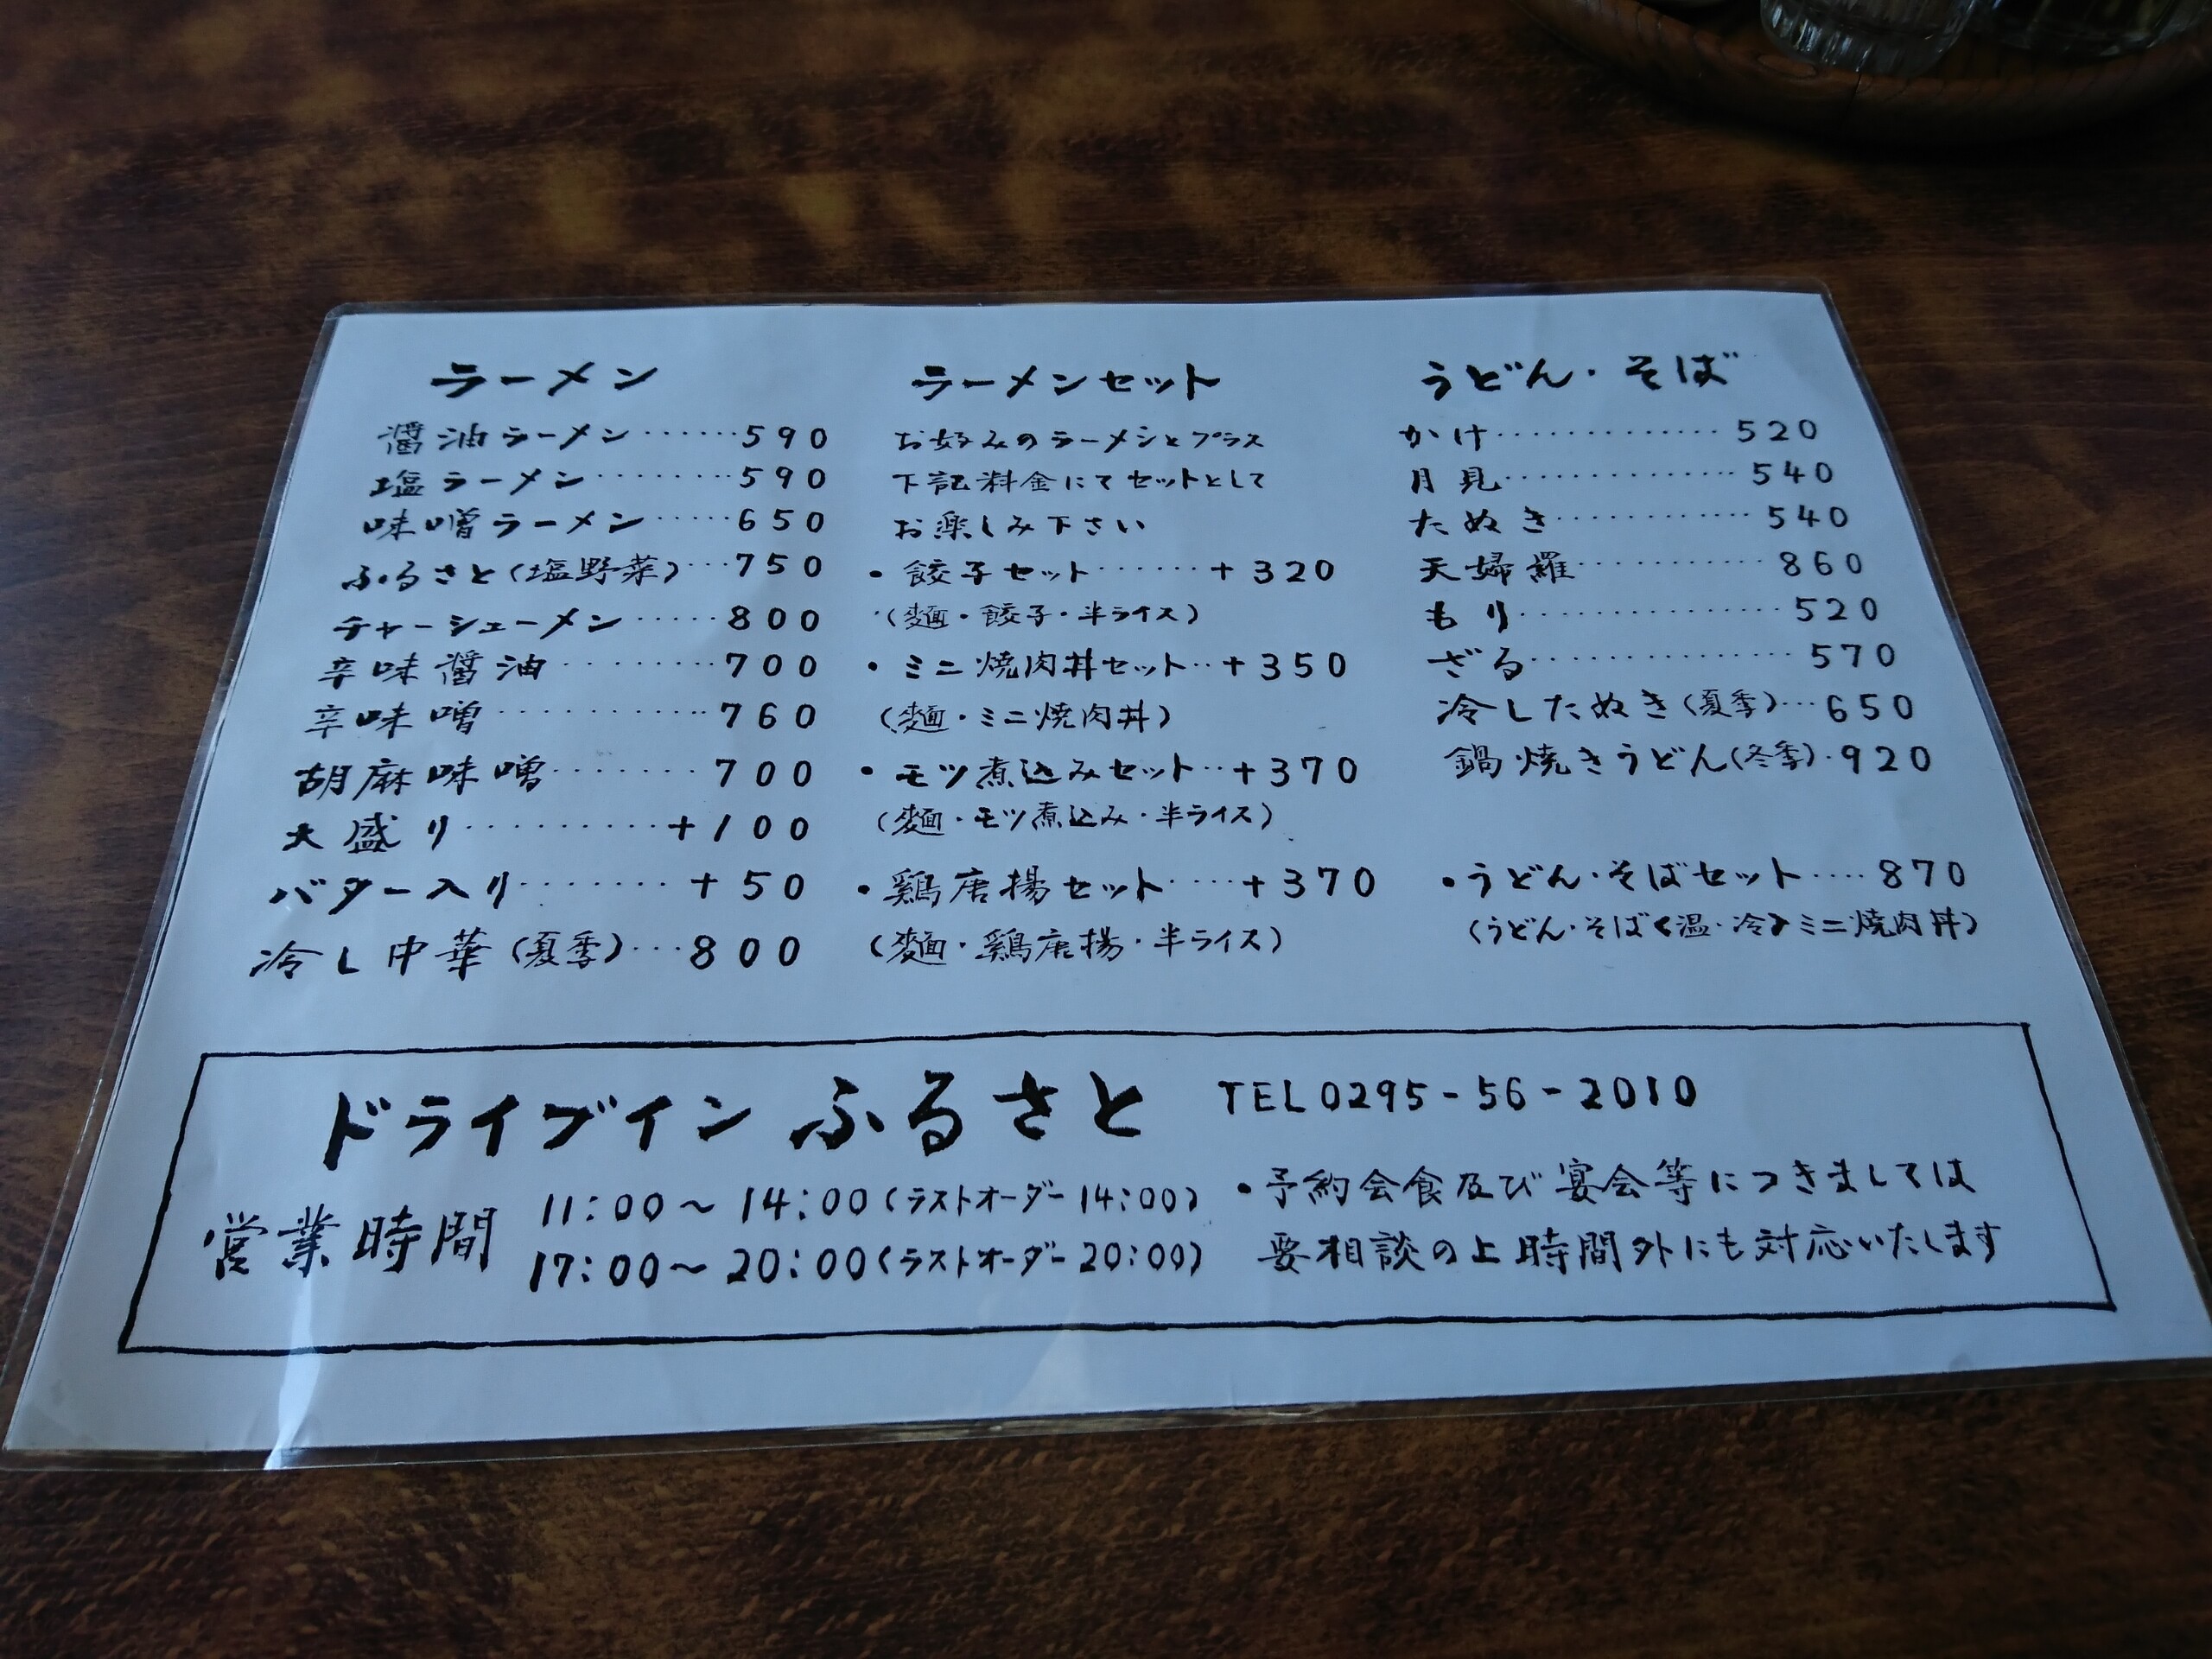 ラーメン
醤油ラーメン······590
塩ラーメン········590
味噌ラーメン·····650
ふるさと(塩野菜)···750
チャーシューメン·····800
辛味醤油·········700
辛味噌············760
胡麻味噌·······700
大盛り·········+100
バター入り·······+50
冷し中華(夏季)···800
ラーメンセット
お好みのラーメンとプラス
下記料金にてセットとして
お楽しみ下さい
・餃子セット······+320
(麺・餃子・半ライス)
・ミニ焼肉丼セット··+350
(麺・ミニ焼肉丼)
・モツ煮込みセット··+370
(麺・モツ煮込み・半ライス)
・鶏唐揚セット····+370
(麺・鶏唐揚・半ライス)
うどん・そば
かけ·············520
月見·············540
たぬき···········540
天婦羅···········860
もり···············520
ざる···············570
冷したぬき(夏季)···650
鍋焼きうどん(冬季)·920
・うどん・そばセット····870
(うどん・そば<温・冷>ミニ焼肉丼)
ドライブイン ふるさと TEL0295-56-2010
営業時間
11:00～14:00(ラストオーダー14:00)
17:00～20:00(ラストオーダー20:00)
・予約会食及び宴会等につきましては
要相談の上時間外にも対応いたします